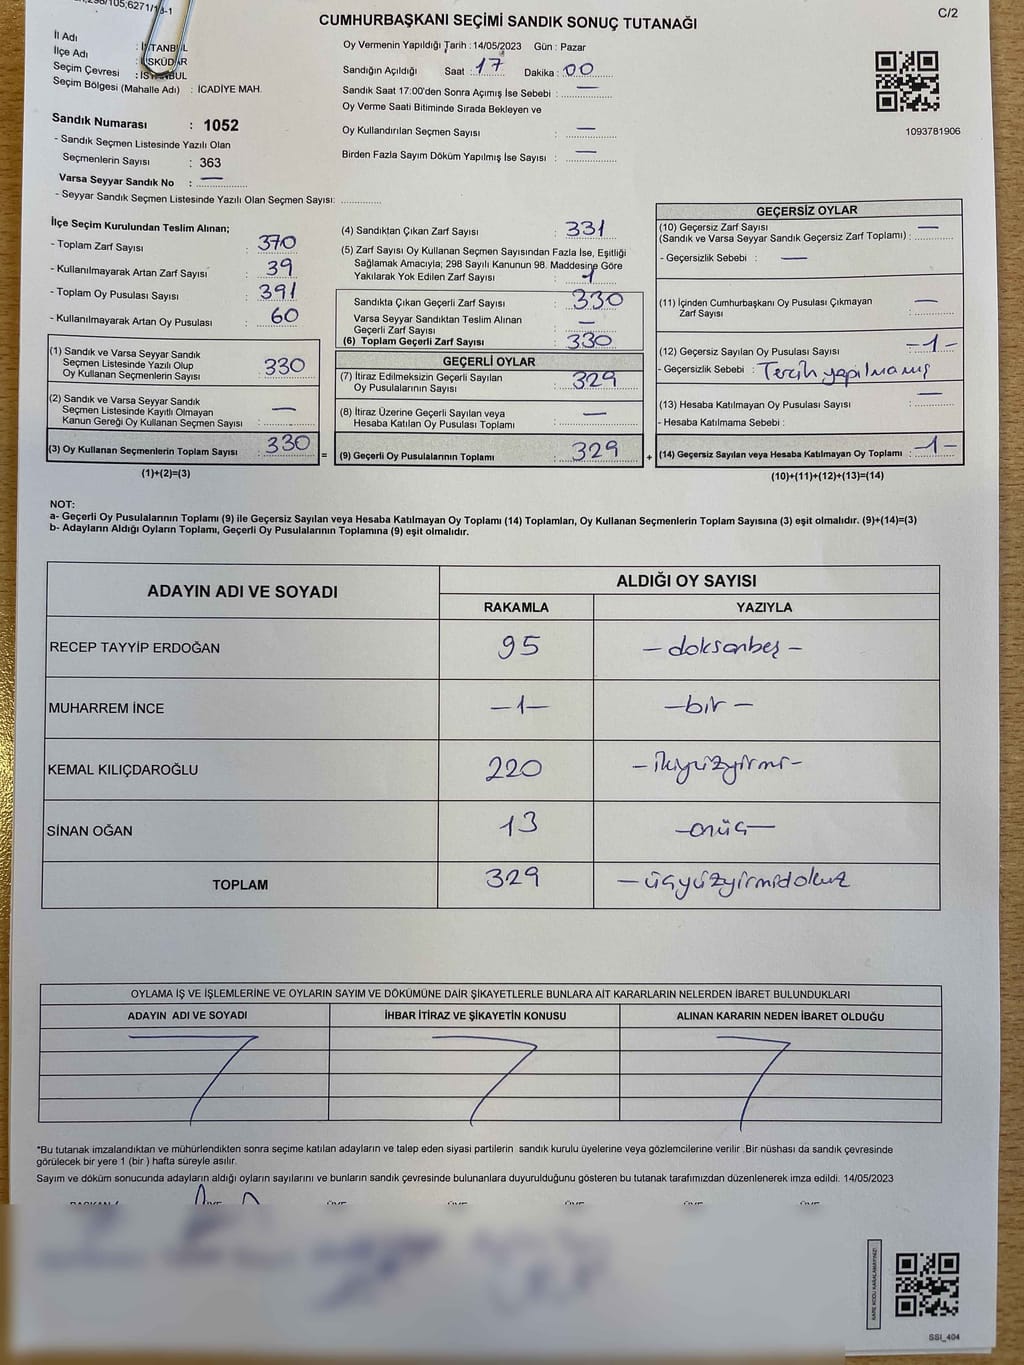 CUMHURBAŞKANI SEÇİMİ SANDIK SONUÇ TUTANAĞI
C/2
İl Adı : İSTANBUL
İlçe Adı : ÜSKÜDAR
Seçim Çevresi : İSTANBUL
Seçim Bölgesi (Mahalle Adı) : İCADİYE MAH.
Sandık Numarası : 1052
- Sandık Seçmen Listesinde Yazılı Olan
Seçmenlerin Sayısı : 363
Varsa Seyyar Sandık No : —
- Seyyar Sandık Seçmen Listesinde Yazılı Olan Seçmen Sayısı: ..............
Oy Vermenin Yapıldığı Tarih : 14/05/2023 Gün : Pazar
Sandığın Açıldığı Saat : 17 Dakika : 00
Sandık Saat 17:00'den Sonra Açımış İse Sebebi : —
Oy Verme Saati Bitiminde Sırada Bekleyen ve
Oy Kullandırılan Seçmen Sayısı : —
Birden Fazla Sayım Döküm Yapılmış İse Sayısı : —
1093781906
İlçe Seçim Kurulundan Teslim Alınan;
- Toplam Zarf Sayısı : 370
- Kullanılmayarak Artan Zarf Sayısı : 39
- Toplam Oy Pusulası Sayısı : 391
- Kullanılmayarak Artan Oy Pusulası : 60
(1) Sandık ve Varsa Seyyar Sandık
Seçmen Listesinde Yazılı Olup
Oy Kullanan Seçmenlerin Sayısı : 330
(2) Sandık ve Varsa Seyyar Sandık
Seçmen Listesinde Kayıtlı Olmayan
Kanun Gereği Oy Kullanan Seçmen Sayısı : —
(3) Oy Kullanan Seçmenlerin Toplam Sayısı : 330
(1)+(2)=(3)
=
(4) Sandıktan Çıkan Zarf Sayısı : 331
(5) Zarf Sayısı Oy Kullanan Seçmen Sayısından Fazla İse, Eşitliği
Sağlamak Amacıyla; 298 Sayılı Kanunun 98. Maddesine Göre
Yakılarak Yok Edilen Zarf Sayısı : 1
Sandıkta Çıkan Geçerli Zarf Sayısı : 330
Varsa Seyyar Sandıktan Teslim Alınan
Geçerli Zarf Sayısı : —
(6) Toplam Geçerli Zarf Sayısı : 330
GEÇERLİ OYLAR
(7) İtiraz Edilmeksizin Geçerli Sayılan
Oy Pusulalarının Sayısı : 329
(8) İtiraz Üzerine Geçerli Sayılan veya
Hesaba Katılan Oy Pusulası Toplamı : —
(9) Geçerli Oy Pusulalarının Toplamı : 329
+
GEÇERSİZ OYLAR
(10) Geçersiz Zarf Sayısı —
(Sandık ve Varsa Seyyar Sandık Geçersiz Zarf Toplamı) : ..............
- Geçersizlik Sebebi : —
(11) İçinden Cumhurbaşkanı Oy Pusulası Çıkmayan
Zarf Sayısı : —
(12) Geçersiz Sayılan Oy Pusulası Sayısı : -1-
- Geçersizlik Sebebi : Tercih yapılmamış
(13) Hesaba Katılmayan Oy Pusulası Sayısı : —
- Hesaba Katılmama Sebebi :
(14) Geçersiz Sayılan veya Hesaba Katılmayan Oy Toplamı : -1-
(10)+(11)+(12)+(13)=(14)
NOT:
a- Geçerli Oy Pusulalarının Toplamı (9) ile Geçersiz Sayılan veya Hesaba Katılmayan Oy Toplamı (14) Toplamları, Oy Kullanan Seçmenlerin Toplam Sayısına (3) eşit olmalıdır. (9)+(14)=(3)
b- Adayların Aldığı Oyların Toplamı, Geçerli Oy Pusulalarının Toplamına (9) eşit olmalıdır.
ADAYIN ADI VE SOYADI
ALDIĞI OY SAYISI
RAKAMLA YAZIYLA
RECEP TAYYİP ERDOĞAN 95 - doksanbeş -
MUHARREM İNCE -1- - bir -
KEMAL KILIÇDAROĞLU 220 - ikiyüzyirmi -
SİNAN OĞAN 13 - onüç -
TOPLAM 329 - üçyüzyirmidokuz
OYLAMA İŞ VE İŞLEMLERİNE VE OYLARIN SAYIM VE DÖKÜMÜNE DAİR ŞİKAYETLERLE BUNLARA AİT KARARLARIN NELERDEN İBARET BULUNDUKLARI
ADAYIN ADI VE SOYADI İHBAR İTİRAZ VE ŞİKAYETİN KONUSU ALINAN KARARIN NEDEN İBARET OLDUĞU
*Bu tutanak imzalandıktan ve mühürlendikten sonra seçime katılan adayların ve talep eden siyasi partilerin sandık kurulu üyelerine veya gözlemcilerine verilir .Bir nüshası da sandık çevresinde
görülecek bir yere 1 (bir ) hafta süreyle asılır.
Sayım ve döküm sonucunda adayların aldığı oyların sayılarını ve bunların sandık çevresinde bulunanlara duyurulduğunu gösteren bu tutanak tarafımızdan düzenlenerek imza edildi. 14/05/2023
KARE KODU KARALAMAYINIZ!
SSI_404